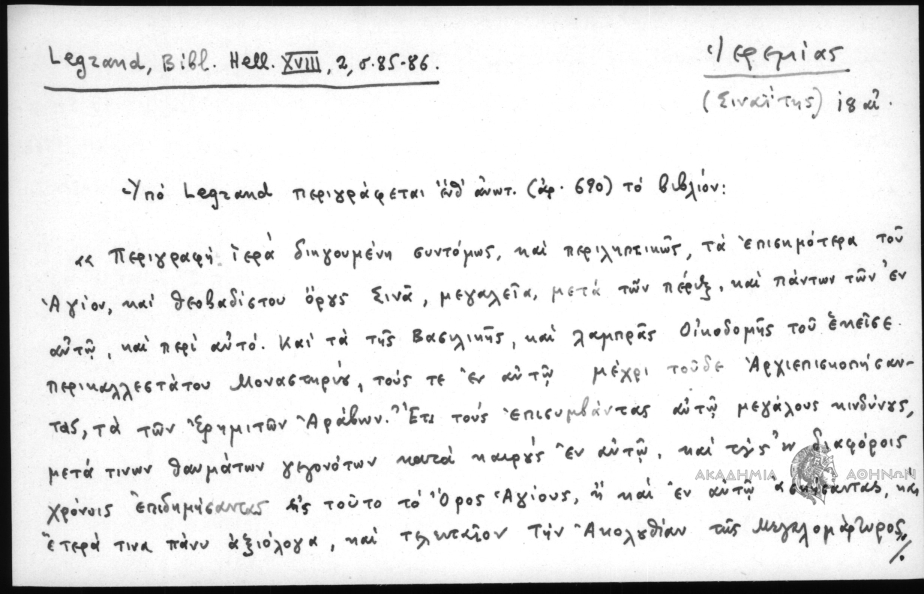 Legrand, Bibl. Hell. XVIII, 2, σ. 85-86.
Ἱερεμίας
(Σιναΐτης) 18 αἰ.
Ὑπό Legrand περιγράφεται ἐνθ' ἀνωτ. (ἀρ. 690) τό βιβλίον:
«Περιγραφή ἱερά διηγουμένη συντόμως, καί περιληπτικῶς, τά ἐπισημότερα τοῦ
Ἁγίου, καί Θεοβαδίστου ὄρȣς Σινᾶ, μεγαλεῖα, μετά τῶν πέριξ, καί πάντων τῶν ἐν
αὐτῷ, καί περί αὐτό. Καί τά τῆς Βασιλικῆς, καί λαμπρᾶς Οἰκοδομῆς τοῦ ἐκεῖσε
περικαλλεστάτου Μοναστηρίȣ, τούς τε ἐν αὐτῷ μέχρι τοῦδε Ἀρχιεπισκοπήσαν-
τας, τά τῶν Ἐρημιτῶν Ἀράβων. Ἔτι τούς ἐπισυμβάντας αὐτῷ μεγάλους κινδύνȣς,
μετά τινων θαυμάτων γεγονότων κατά καιρȣς ἐν αὐτῷ, καί τȣς ἐν διαφόροις
χρόνοις ἐπιδημήσαντας εἰς τοῦτο τό Ὄρος Ἁγίους, ἤ καί ἐν αὐτῷ ἀσκήσαντας, καί
ἕτερά τινα πάνυ ἀξιόλογα, καί τελευταῖον τήν Ἀκολυθίαν τῆς Μεγαλομάρτυρος
./.
ΑΚΑΔΗΜΙΑ ΑΘΗΝΩΝ